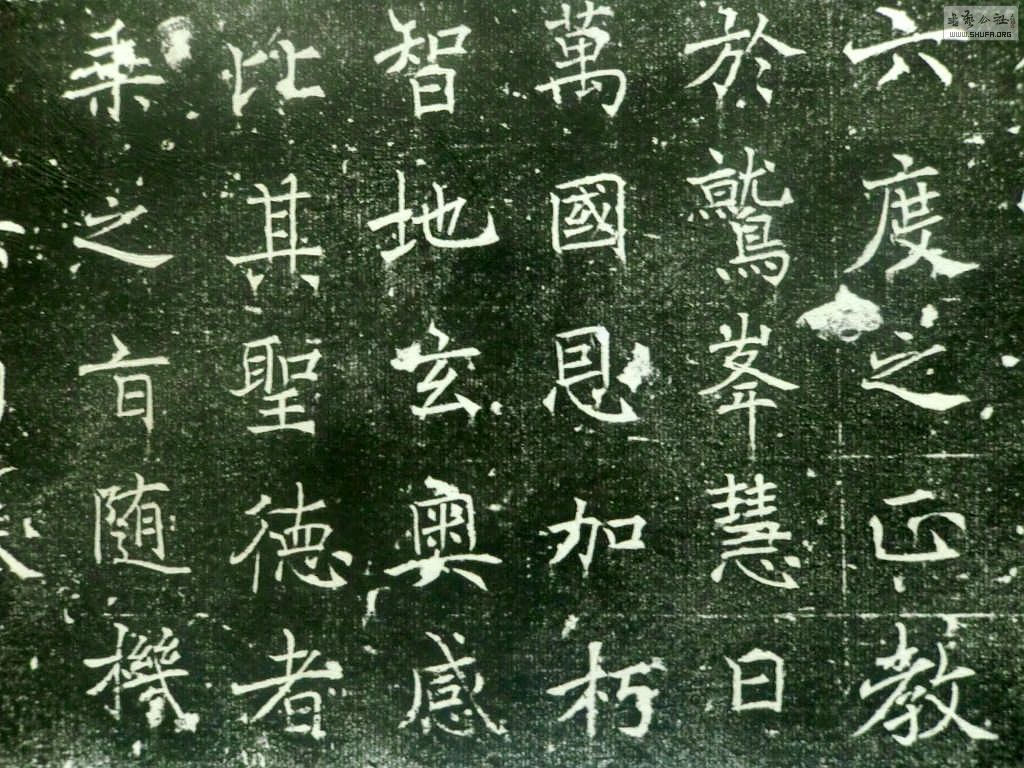 六度之正教
於鷲峯慧日
萬國恩加朽
智地玄奧感
比其聖德者
乘之旨随機
WWW.SHUFA.ORG